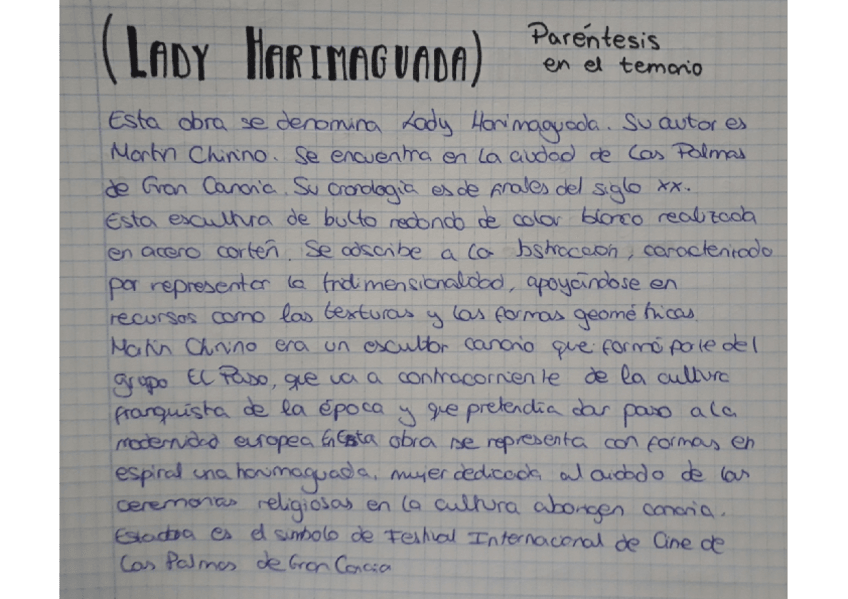 (LADY HARIMAGUADA) Paréntesis
en el temario
Esta obra se denomina Lady Harimaguada. Su autor es
Martín Chirino. Se encuentra en la ciudad de Las Palmas
de Gran Canaria. Su cronología es de finales del siglo XX.
Esta escultura de bulto redondo de color blanco realizada
en acero corteñ. Se adscribe a la bstracción, caracterizado
por representar la tridimensionalidad, apoyándose en
recursos como las texturas y las formas geométricas.
Matin Chirino era un escultor canario que formó parte del
grupo El Paso, que va a contracorriente de la cultura
franquista de la época y que pretendía dar paso a la
modernidad europea. En esta obra se representa con formas en
espiral una harimaguada, mujer dedicada al cuidado de las
ceremonias religiosas en la cultura aborigen canaria.
Esta obra es el símbolo de Festival Internacional de Cine de
Las Palmas de Gran Canaria